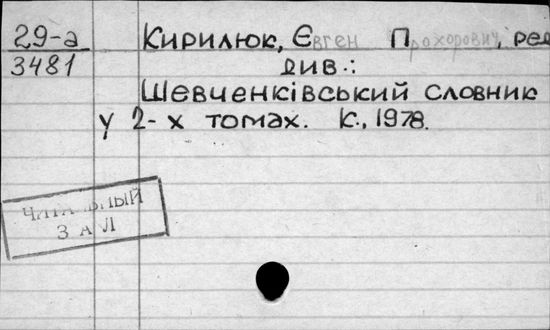 29-а Кирилюк, Євген Прохорович, ред
3481 див.:
Шевченківський словник
у 2-х томах. К., 1978.
ЧИТАЛЬНЫЙ
ЗАЛ